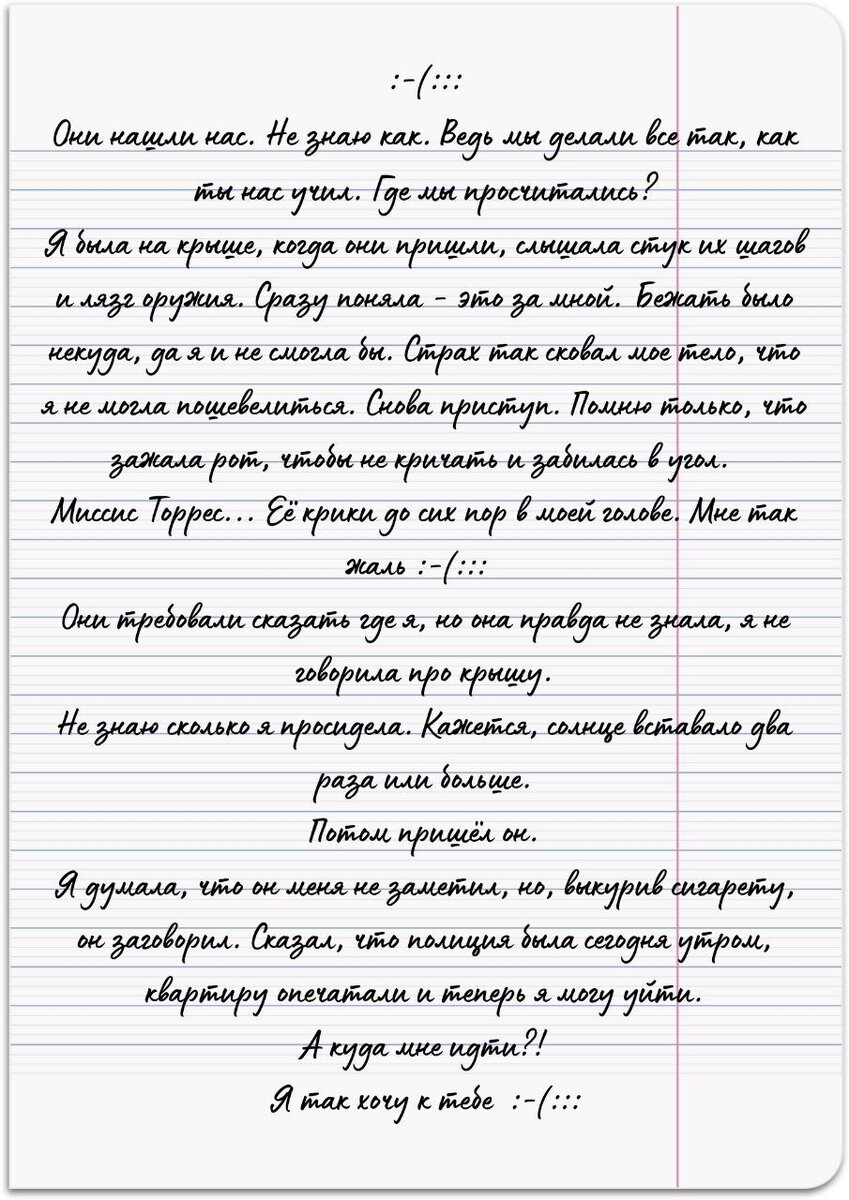 :-(:::
Они нашли нас. Не знаю как. Ведь мы делали все так, как
ты нас учил. Где мы просчитались?
Я была на крыше, когда они пришли, слышала стук их шагов
и лязг оружия. Сразу поняла - это за мной. Бежать было
некуда, да я и не смогла бы. Страх так сковал мое тело, что
я не могла пошевелиться. Снова приступ. Помню только, что
зажала рот, чтобы не кричать и забилась в угол.
Миссис Торрес... Её крики до сих пор в моей голове. Мне так
жаль :-(:::
Они требовали сказать где я, но она правда не знала, я не
говорила про крышу.
Не знаю сколько я просидела. Кажется, солнце вставало два
раза или больше.
Потом пришёл он.
Я думала, что он меня не заметил, но, выкурив сигарету,
он заговорил. Сказал, что полиция была сегодня утром,
квартиру опечатали и теперь я могу уйти.
А куда мне идти?!
Я так хочу к тебе :-(:::